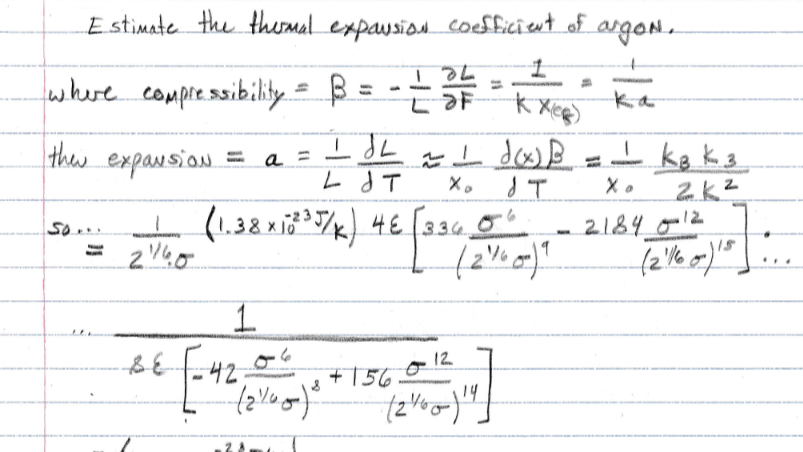 Estimate the thermal expansion coefficient of argon.
where compressibility = β = - 1/L ∂L/∂F = 1/(k x(eq)) = 1/(ka)
then expansion = a = 1/L dL/dT ≈ 1/x₀ d⟨x⟩β/dT = 1/x₀ k_B k_3/(2k²)
so... = 1/(2^{1/6}σ) (1.38 x 10^{-23} J/K) 4ε [336 σ⁶/(2^{1/6}σ)⁹ - 2184 σ¹²/(2^{1/6}σ)¹⁵] ...
... 1/(8ε [-42 σ⁶/(2^{1/6}σ)⁸ + 156 σ¹²/(2^{1/6}σ)¹⁴])